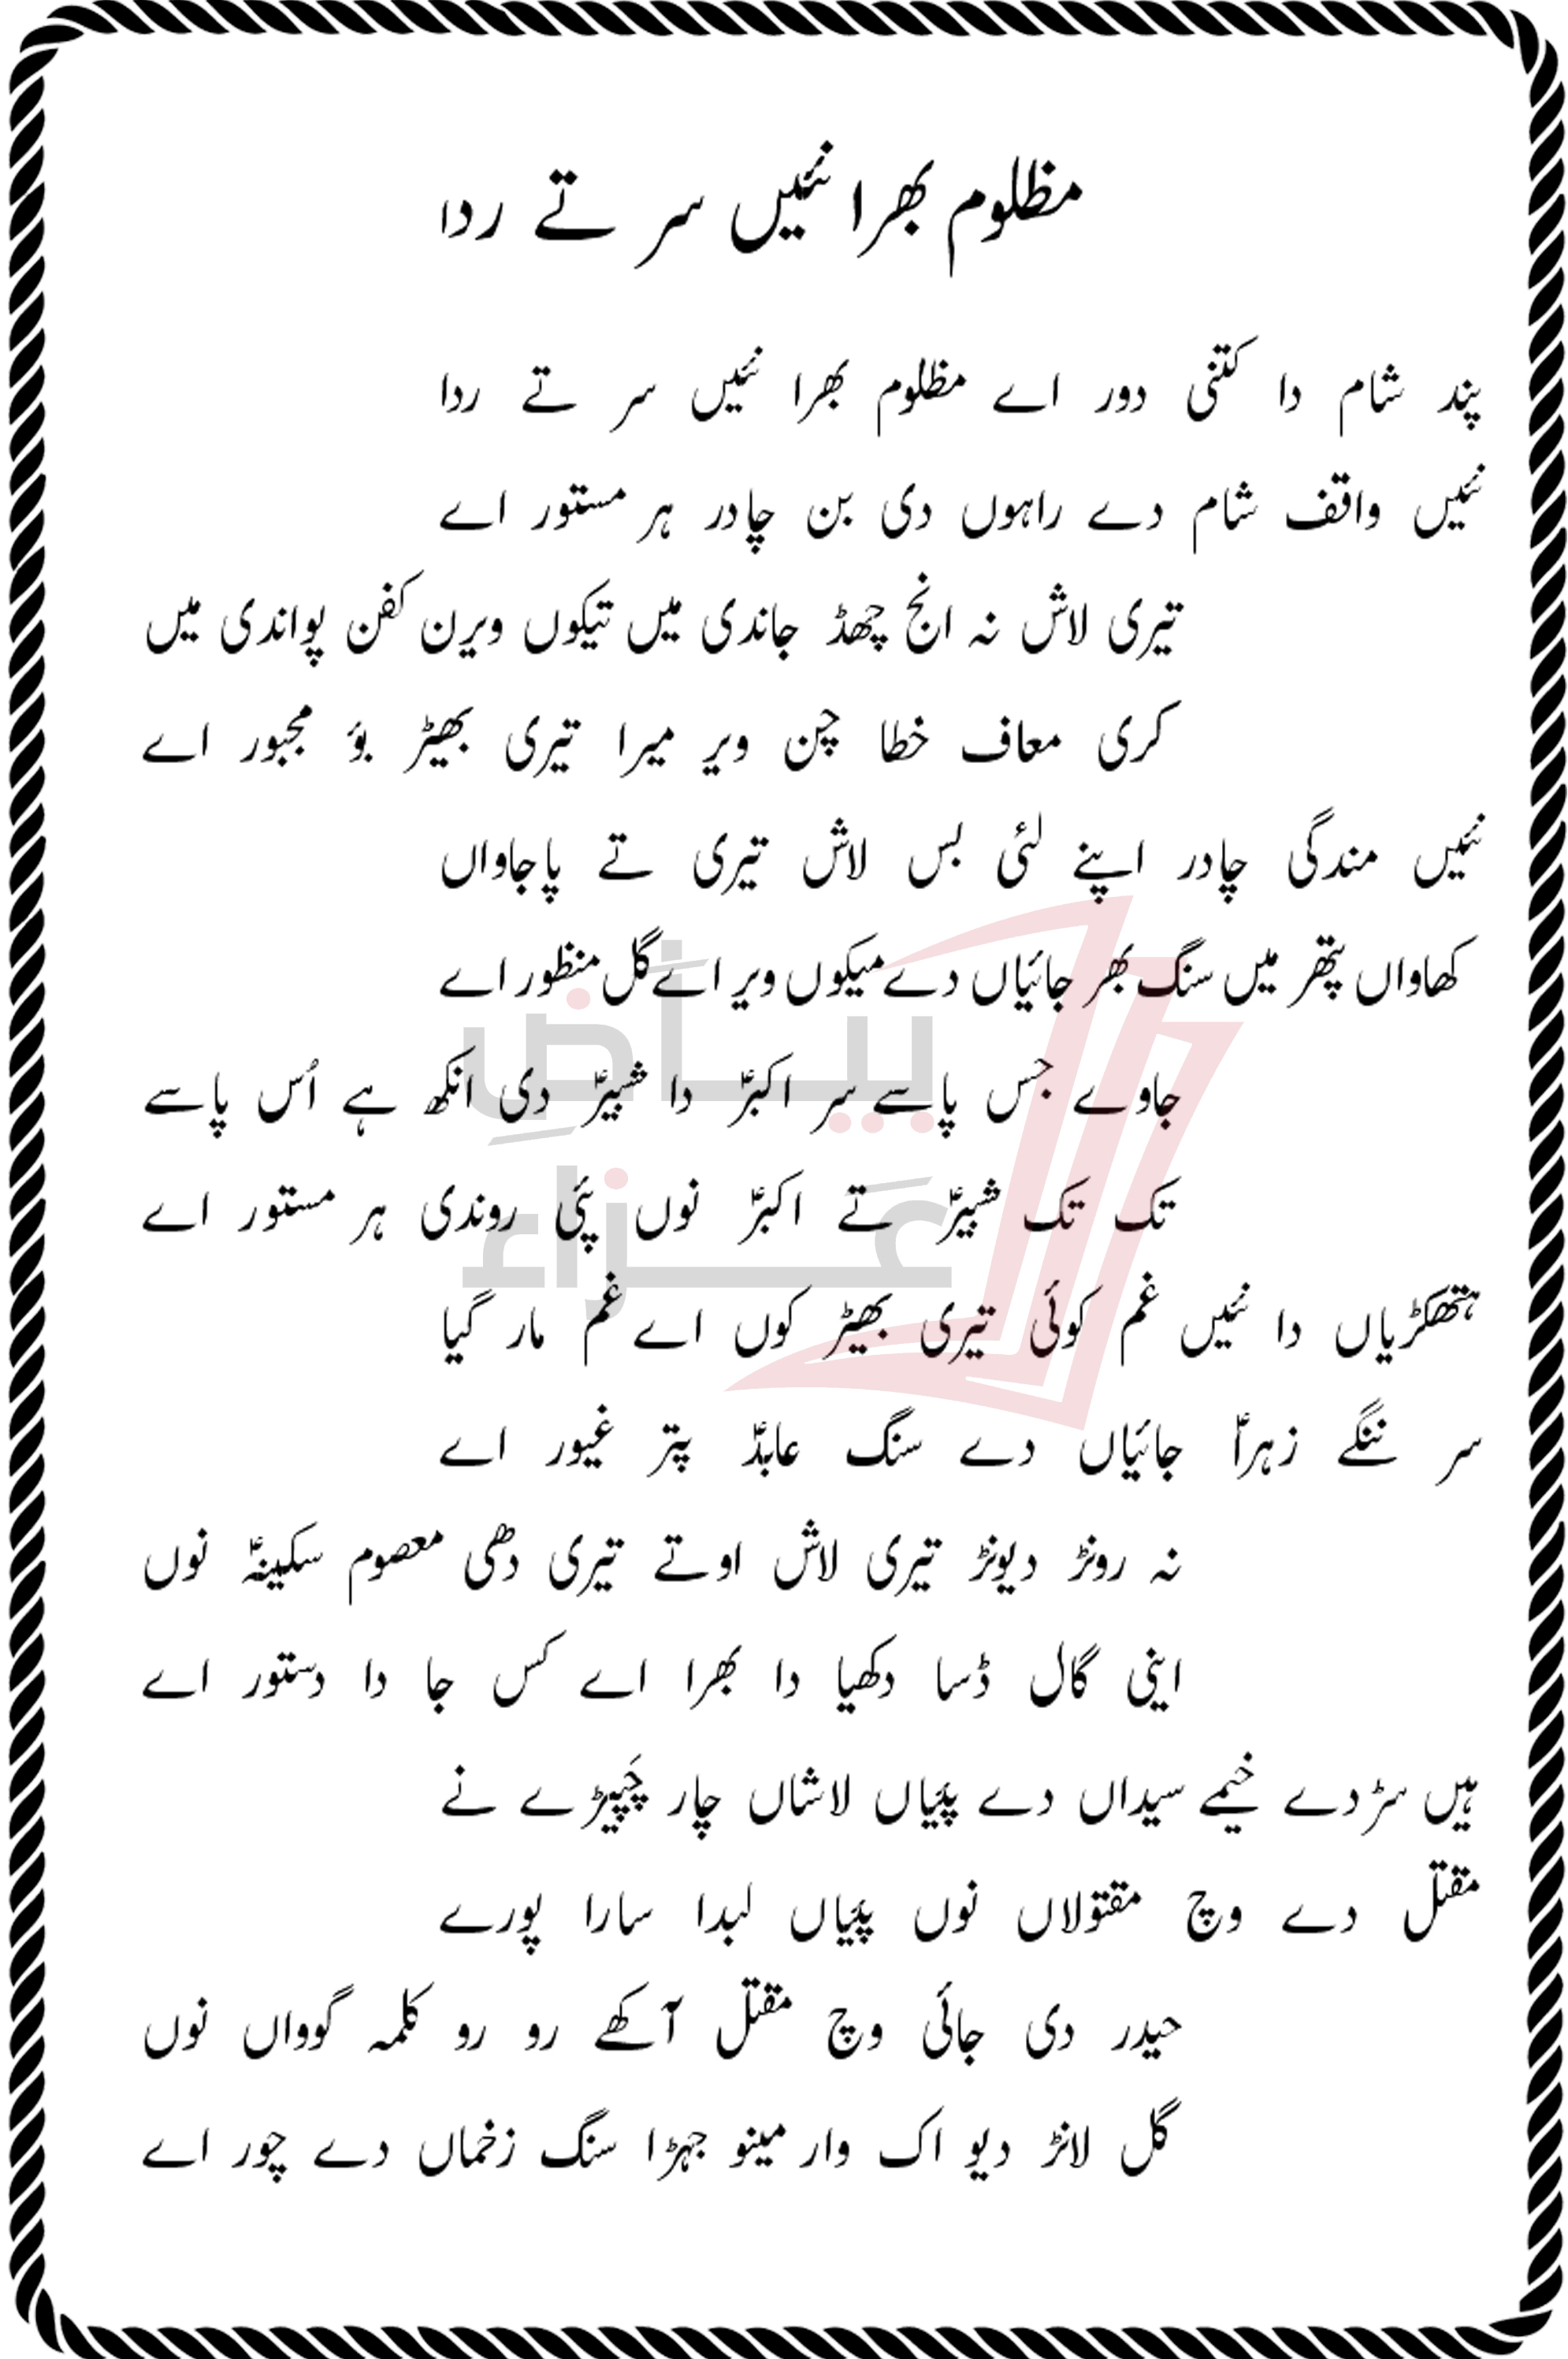 مظلوم بھرا نئیں سر تے ردا
پند شام دا کتنی دور اے مظلوم بھرا نئیں سر تے ردا
نئیں واقف شام دے راہوں دی بن چادر ہر مستور اے
تیری لاش نہ انج چھڈ جاندی میں تیکوں ویرن کفن پواندی میں
کری معاف خطا چن ویر میرا تیری بھیڑ بؤ مجبور اے
نئیں مندگی چادر اپنے لئی بس لاش تیری تے پا جاواں
کھاواں پتھر میں سنگ بھر جائیاں دے میکوں ویر اے گل منظور اے
جاوے جس پاسے سر اکبرؑ دا شبیرؑ دی انکھ ہے اُس پاسے
تک تک شبیرؑ تے اکبرؑ نوں پئی روندی ہر مستور اے
ہتھکڑیاں دا نئیں غم کوئی تیری بھیڑ کوں اے غم مار گیا
سر ننگے زہراؑ جائیاں دے سنگ عابدؑ پتر غیور اے
نہ رونڑ دیونڑ تیری لاش اوتے تیری دھی معصوم سکینہؑ نوں
اینی گال ڈسا دکھیا دا بھرا اے کس جا دا دستور اے
ہیں سڑدے خیمے سیداں دے پئیاں لاشاں چار چَپیڑے نے
مقتل دے وچ مقتولاں نوں پئیاں لبدا سارا پورے
حیدر دی جائی وچ مقتل آکھے رو رو کلمہ گوواں نوں
گل لانڑ دیو اک وار مینو جہڑا سنگ زخماں دے چور اے
بیاضِ
عزاء